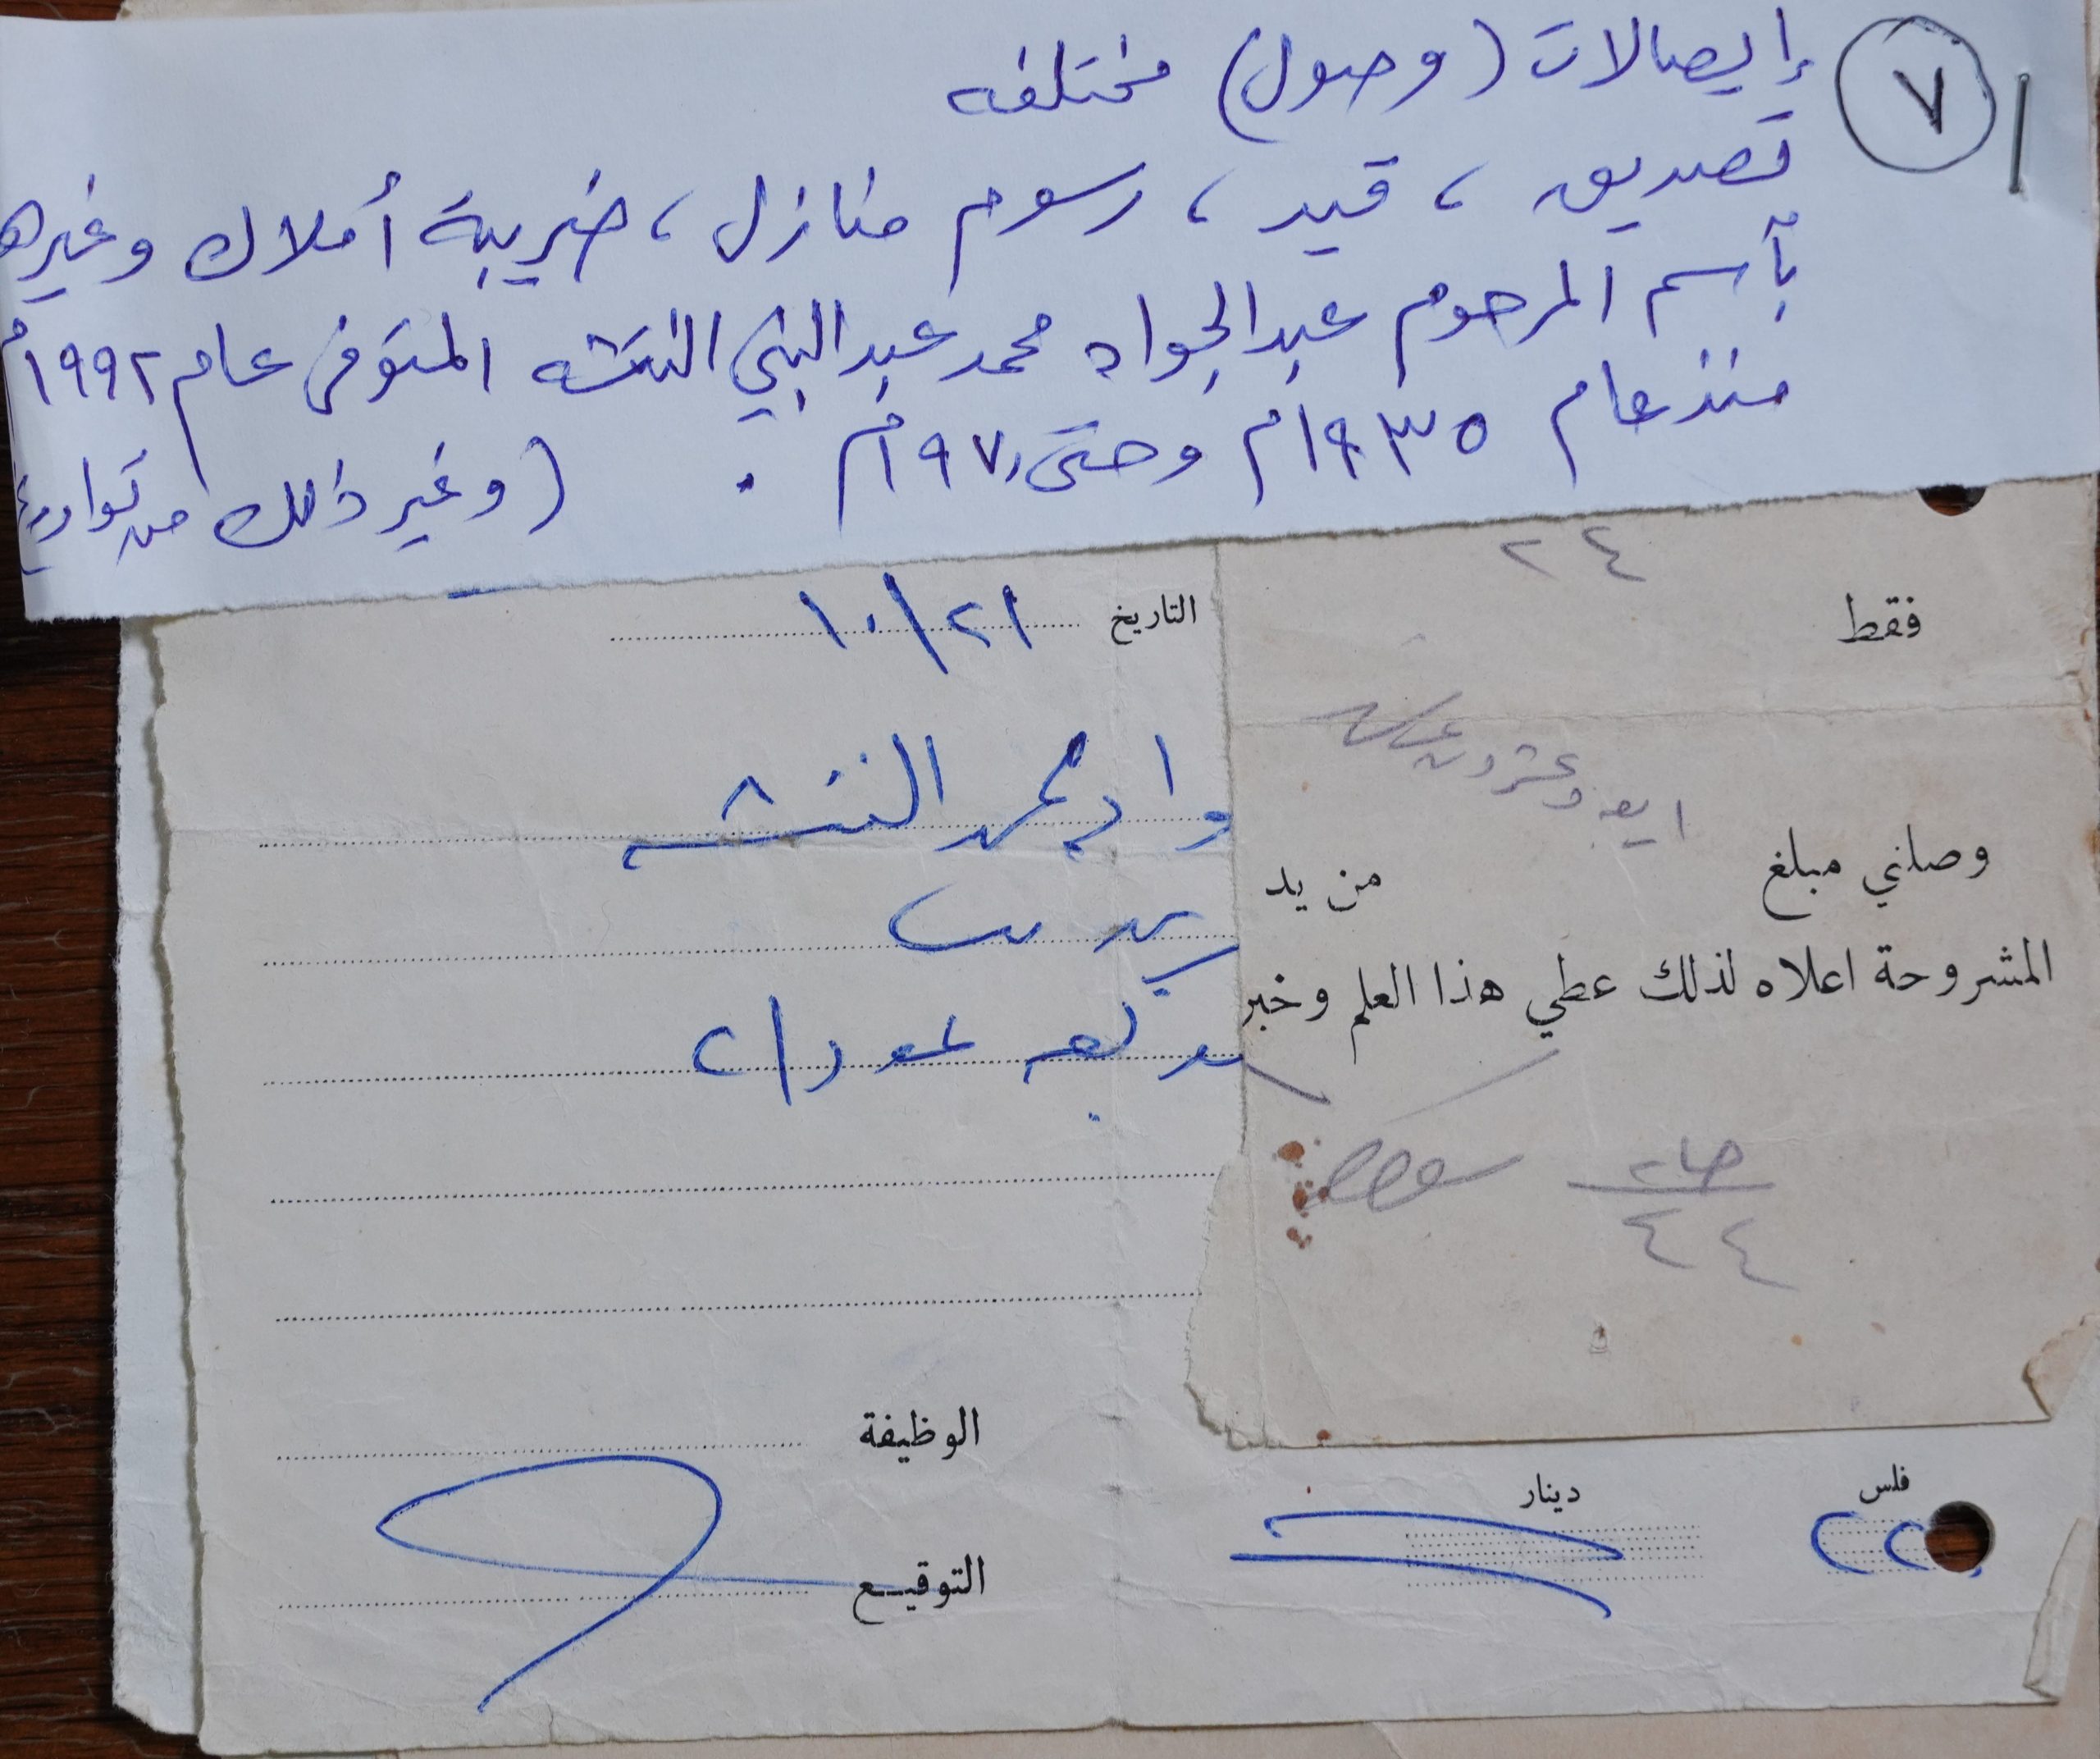 ٧
إيصالات (وصول) مختلفه
تصديق ، قيد ، رسوم منازل ، ضريبة أملاك وغيره
بآسم المرحوم عبدالجواد محمد عبدالنبي النتشه المتوفى عام ١٩٩٢م
منذ عام ١٩٣٥م وحتى ١٩٧٠م .
(وغير ذلك من تواريخ
٢٤
فقط
اربعه وعشرون
وصلني مبلغ من يد
المشروحة اعلاه لذلك عطي هذا العلم وخبر
٤٤
التاريخ ١٠/٢١
واد محمد النتشه
الوظيفة
التوقيع
فلس
دينار